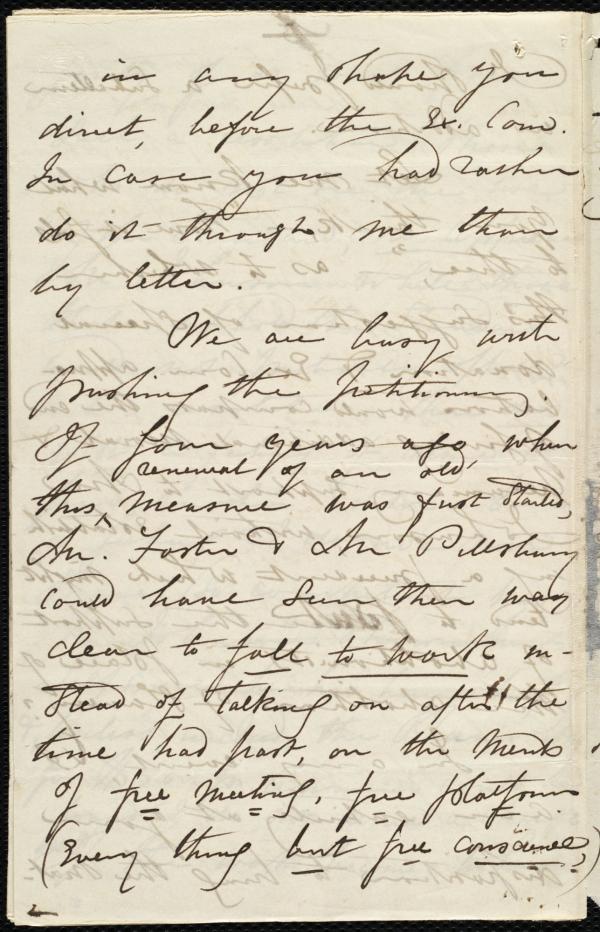 in any shape you
direct, before the Ex. Com.
In case you had rather
do it through me than
by letter.
We are busy with
pushing the petitioning.
If four years ago, when
renewal of an old,
this, measure was just started,
Mr. Foster & Mr Pillsbury
could have seen their way
clear to fall to work in-
stead of talking on after the
time had past, on the merits
of free meeting, free platform
(Every thing but free conscience,)